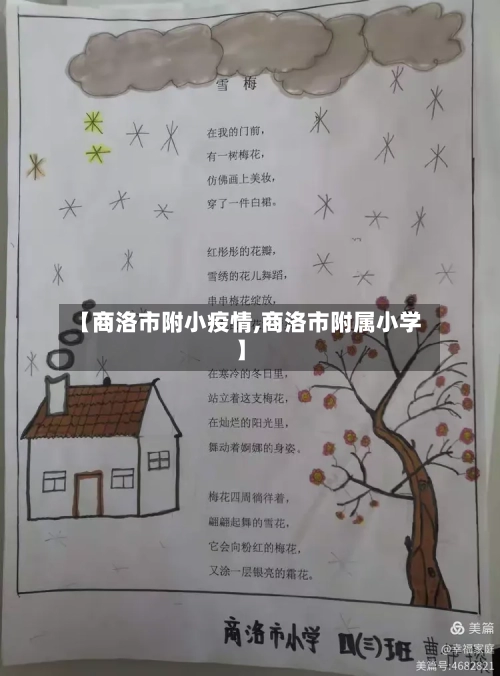 雪 梅
在我的门前，
有一树梅花，
仿佛画上美妆，
穿了一件白裙。
红彤彤的花瓣，
雪绣的花儿舞蹈，
串串梅花绽放，
【商洛市附小疫情,商洛市附属小学
】
在寒冷的冬日里，
站立着这支梅花，
在灿烂的阳光里，
舞动着婀娜的身姿。
梅花四周徜徉着，
翩翩起舞的雪花，
它会向粉红的梅花，
又涂一层银亮的霜花。
商洛市小学 四(三)班 曹
美篇
@幸福家庭
美篇号:4682821